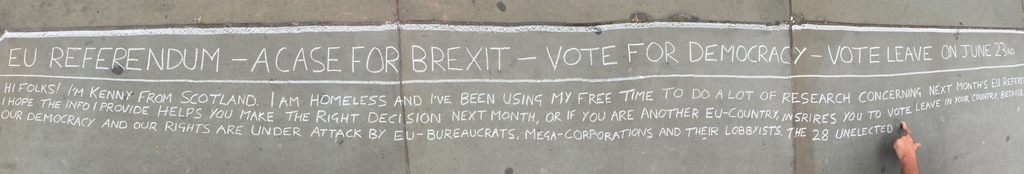 EU REFERENDUM - A CASE FOR BREXIT - VOTE FOR DEMOCRACY - VOTE LEAVE ON JUNE 23RD
HI FOLKS! I'M KENNY FROM SCOTLAND. I AM HOMELESS AND I'VE BEEN USING MY FREE TIME TO DO A LOT OF RESEARCH CONCERNING NEXT MONTH'S EU REFERE
I HOPE THE INFO I PROVIDE HELPS YOU MAKE THE RIGHT DECISION NEXT MONTH, OR IF YOU ARE ANOTHER EU-COUNTRY, INSRIRES YOU TO VOTE LEAVE IN YOUR COUNTRY, BECAUSE
OUR DEMOCRACY AND OUR RIGHTS ARE UNDER ATTACK BY EU-BUREAUCRATS, MEGA-CORPORATIONS AND THEIR LOBBYISTS. THE 28 UNELECTED